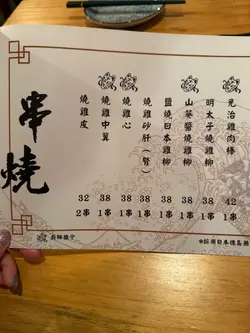 串燒
免治雞肉棒 42 1串
明太子燒雞柳 38 1串
山葵醬燒雞柳 38 1串
鹽燒日本雞柳 38 1串
燒雞砂肝(腎) 38 1串
燒雞心 38 1串
燒雞中翼 38 1串
燒雞皮 32 2串
廚師推介
※採用日本德島雞